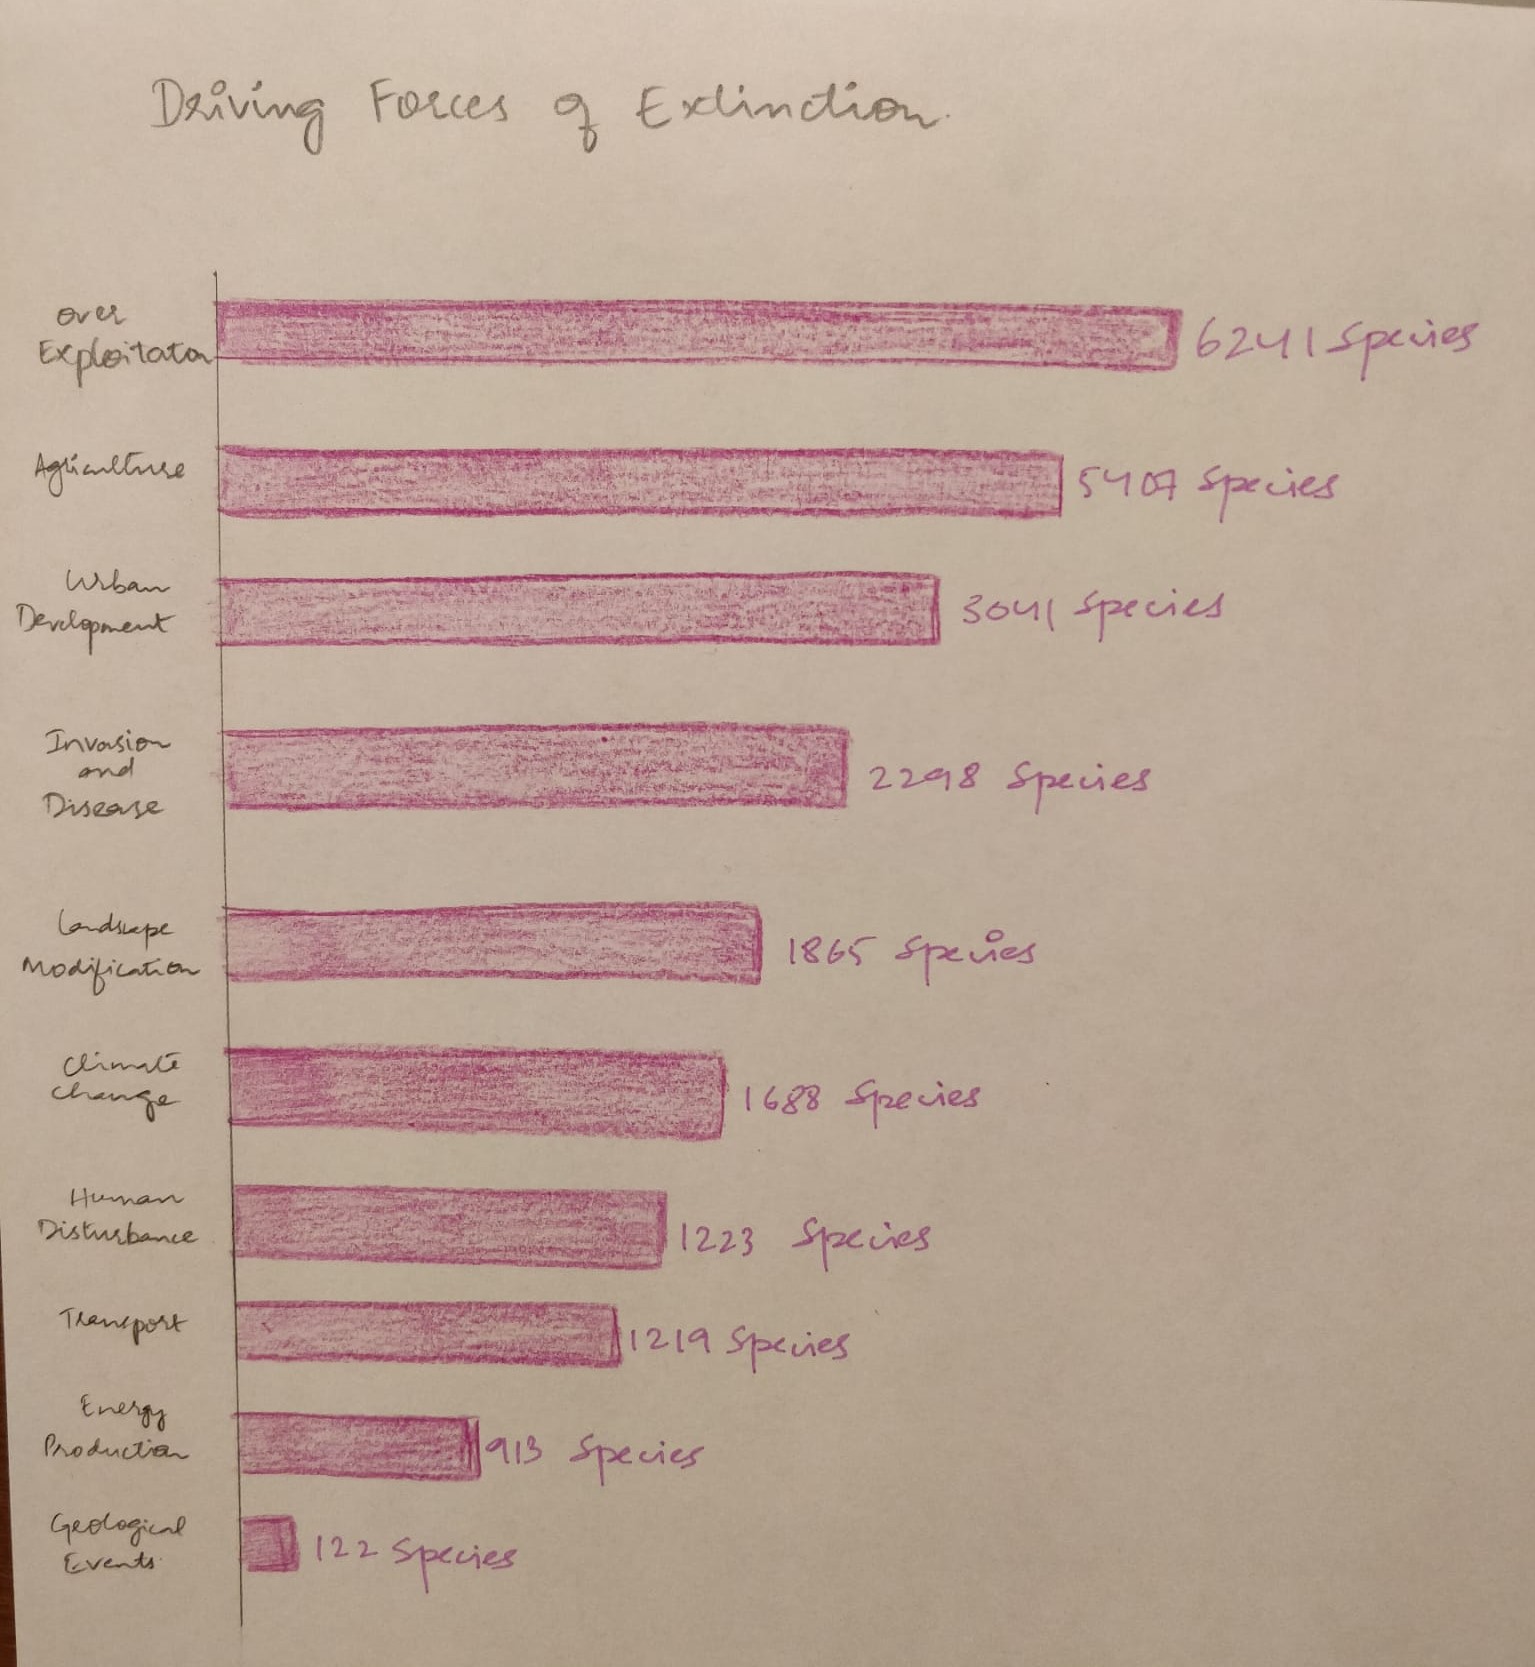 Driving Forces of Extinction.
over
Exploitaton
6241 Species
Agriculture
5407 Species
Urban
Development
3041 Species
Invasion
and
Disease
2298 Species
Landscape
Modification
1865 Species
Climate
change
1688 Species
Human
Disturbance
1223 Species
Transport
1219 Species
Energy
Production
913 Species
Geological
Events
122 Species